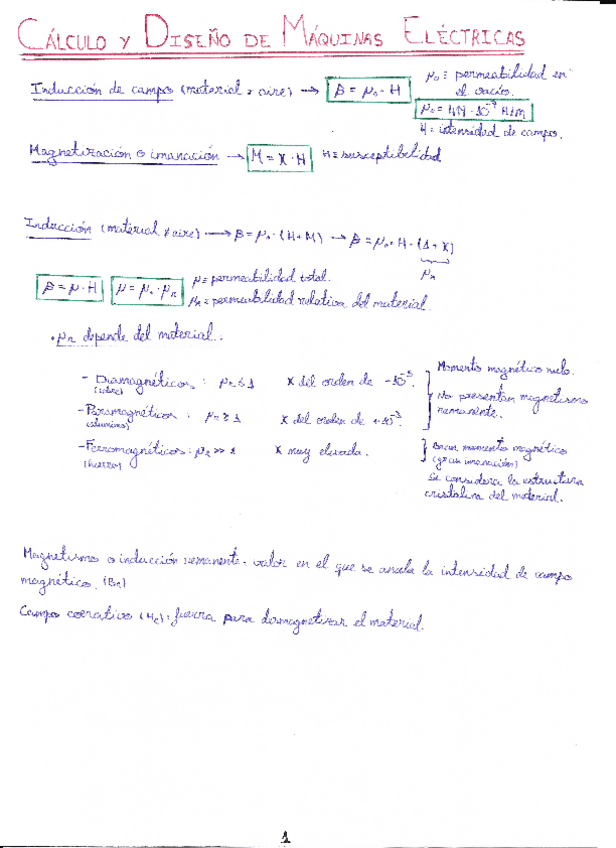 CÁLCULO Y DISEÑO DE MÁQUINAS ELÉCTRICAS
Inducción de campo (material y aire) → B = μ₀ · H
μ₀ ≡ permeabilidad en el vacío.
μ₀ = 4π · 10⁻⁷ H/m
H ≡ intensidad de campo.
Magnetización o imanación → M = χ · H
H ≡ susceptibilidad
Inducción (material y aire) → B = μ₀ · (H + M) → B = μ₀ · H · (1 + χ)
μR
B = μ · H
μ = μ₀ · μR
μ ≡ permeabilidad total.
μR ≡ permeabilidad relativa del material.
· μR depende del material:
- Diamagnéticos: μR ≤ 1 χ del orden de -10⁻⁵
(cobre)
- Paramagnéticos: μR ≥ 1 χ del orden de +10⁻³
(aluminio)
Momento magnético nulo.
No presentan magnetismo remanente.
- Ferromagnéticos: μR >> 1 χ muy elevada.
(hierro)
Gran momento magnético
(gran imanación)
Se considera la estructura
cristalina del material.
Magnetismo o inducción remanente: valor en el que se anula la intensidad de campo
magnético. (Br)
Campo coercitivo (Hc): fuerza para desmagnetizar el material.
1